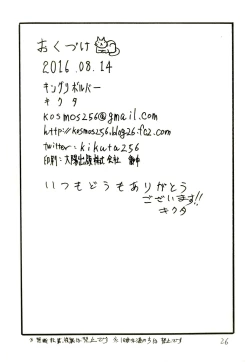 おくづけ
2016.08.14
キングリボルバー
キクタ
kosmos256@gmail.com
http://kosmos256.blog26.fc2.com
twitter:kikuta256
印刷:大陽出版株式会社
いつもどうもありがとう
ございます!!
キクタ
禁止です
禁止です
26